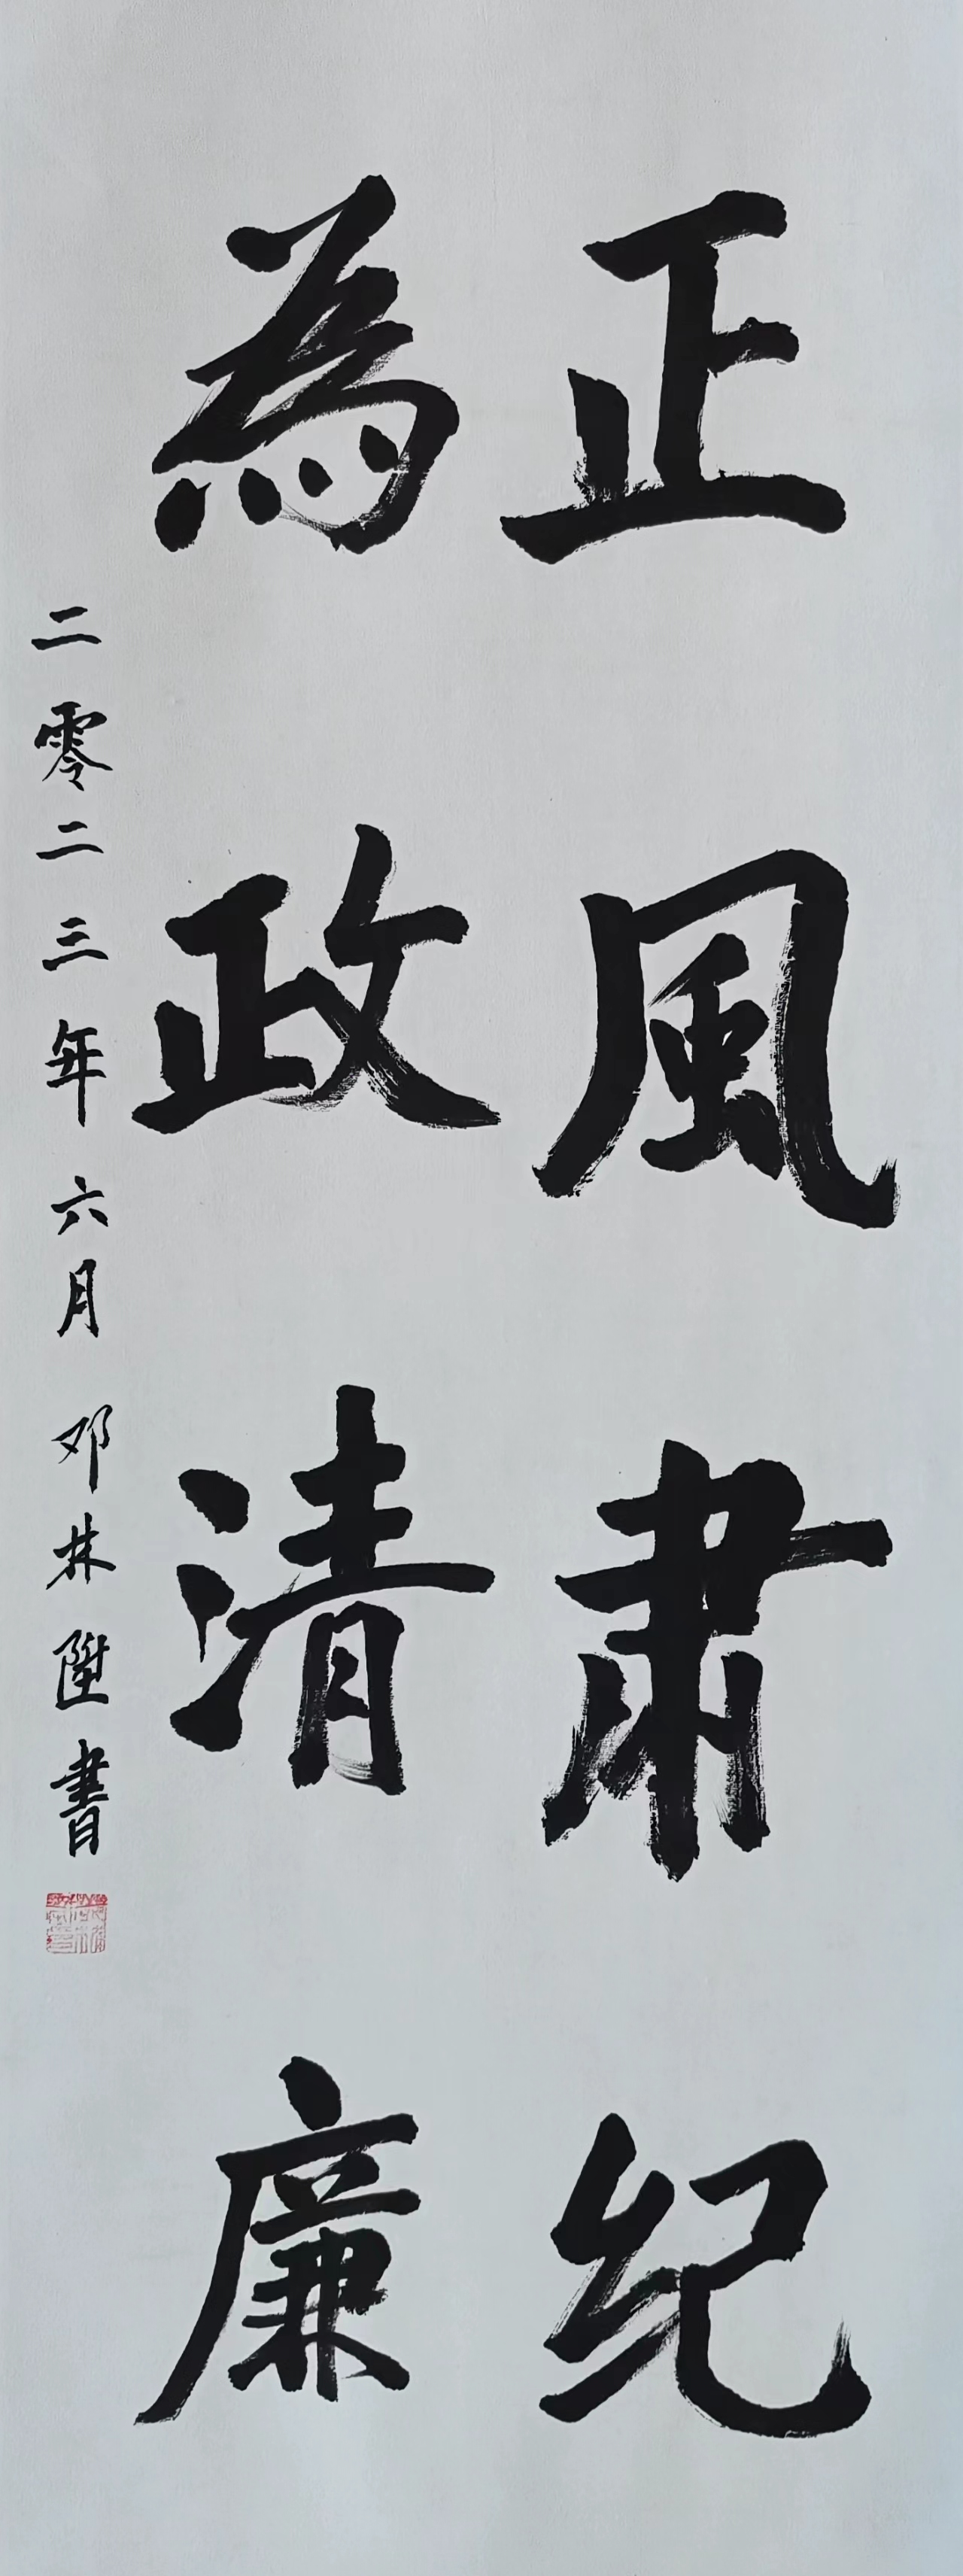 正風肅纪
為政清廉
二零二三年六月 邓林陞書